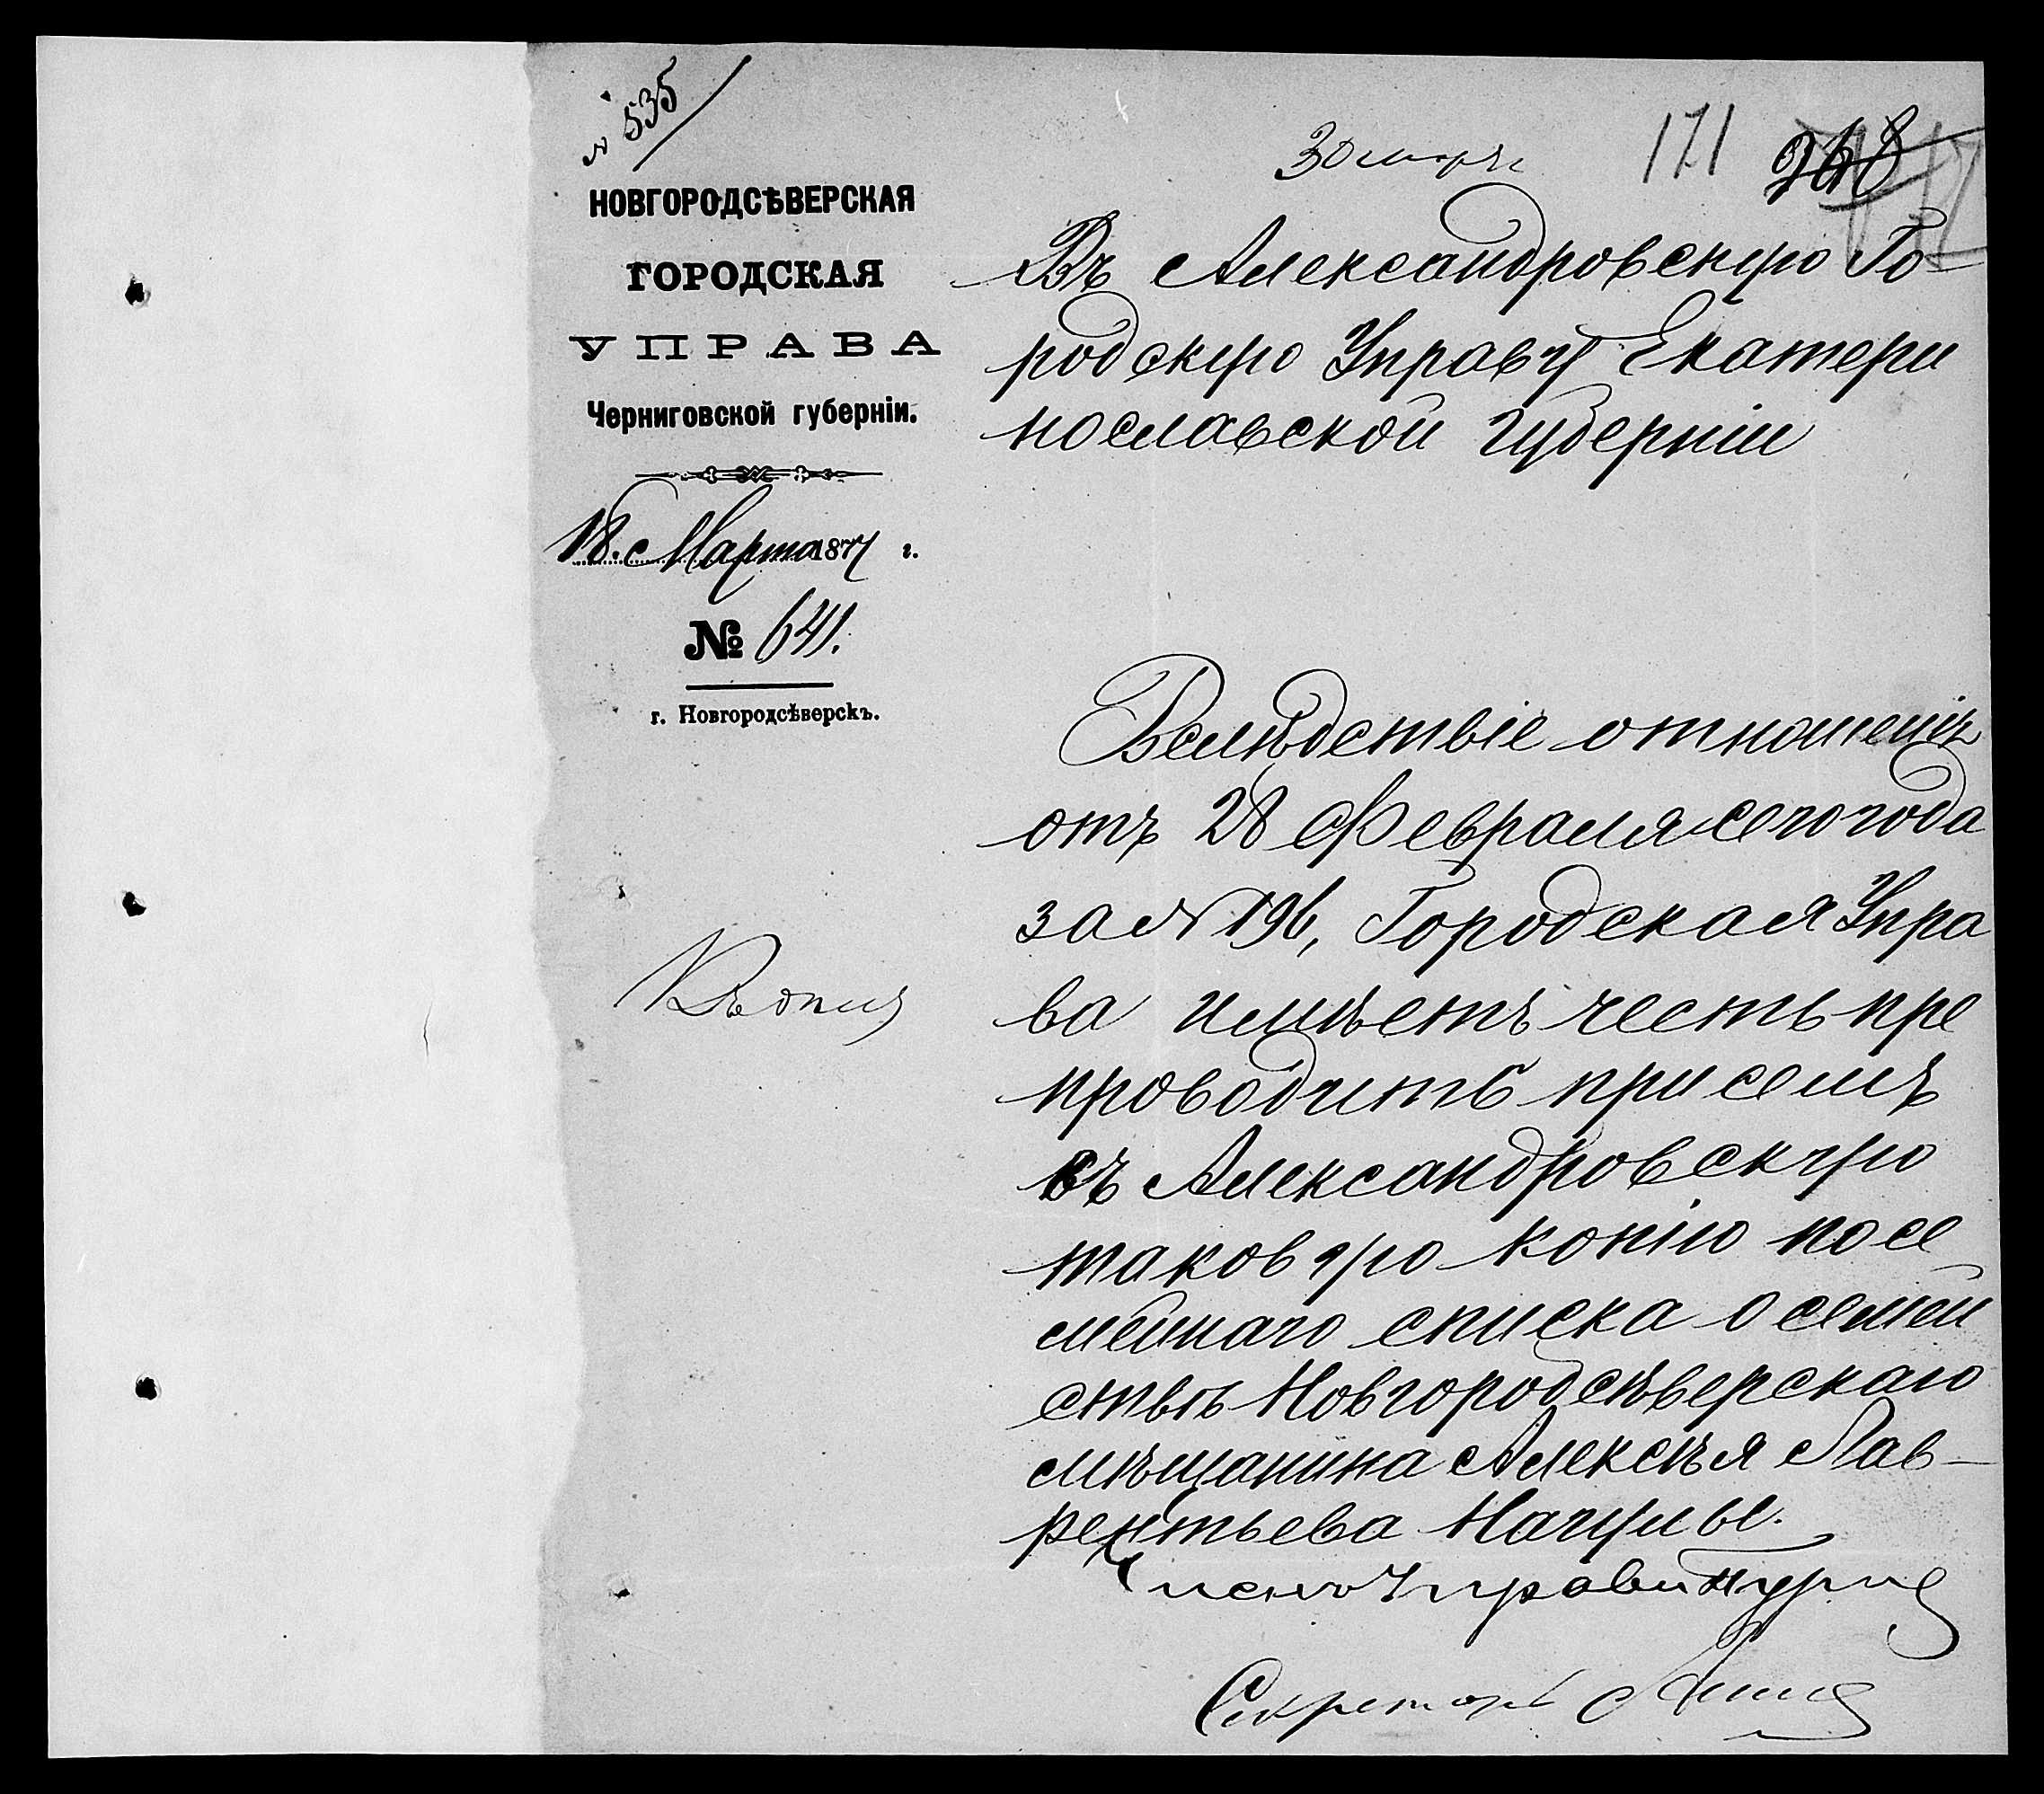 № 535
НОВГОРОДСѢВЕРСКАЯ
ГОРОДСКАЯ
УПРАВА
Черниговской губерніи.
18. Марта 1877 г.
№ 641.
г. Новгородсѣверскъ.
30 марта
171
Въ Александровскую Го-
родскую Управу Екатери
нославской губерніи
Вслѣдствіе отношенія
отъ 28 Февраля сего года
за № 196, Городская Упра
ва имѣетъ честь пре
проводить при семъ
въ Александровскую
таковую копію посе
мейнаго списка о семей
ствѣ Новгородсѣверскаго
мѣщанина Алексѣя Лав-
рентьева Нагулы.
Членъ Управы
Секретарь